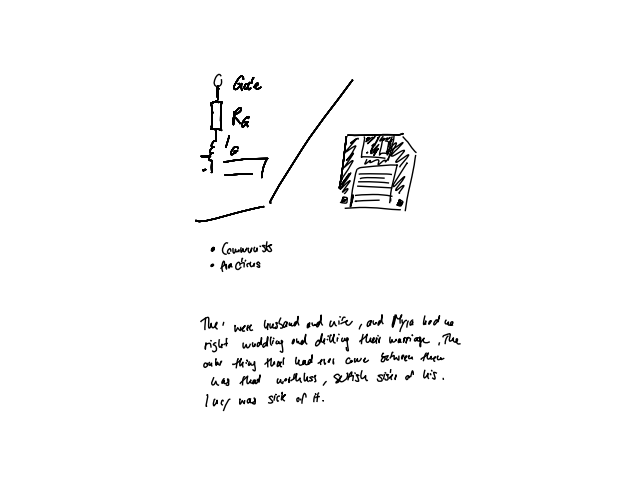 Gate
RG
IG
• Communists
• 
The: were husband and wife, and Myra had no
right meddling and defiling their marriage. The
only thing that had ever come between them
was that worthless, selfish sister of his.
Lucy was sick of it.